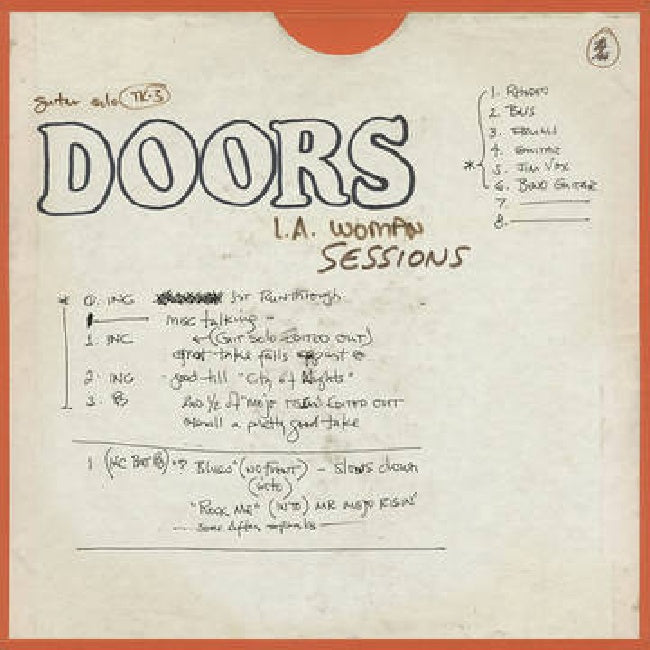 guitar solo TK-3
DOORS
L.A. WOMAN
SESSIONS
1. 
2. BUS
3. 
4. GUITAR
* 5. JIM VOX
6. GUITAR
7.
8.
* 0. INC 1st Runthrough
misc talking -
1. INC (GUIT Solo EDITED OUT)
great take falls apart @
2. INC - good till "City of Nights"
3. 2nd 1/2 of "Mojo EDITED OUT
overall a pretty good take
1 (INC BUT Blues" (NO FRONT) - slows down
(INTO)
"ROCK ME" (INTO) MR MOJO RISIN'